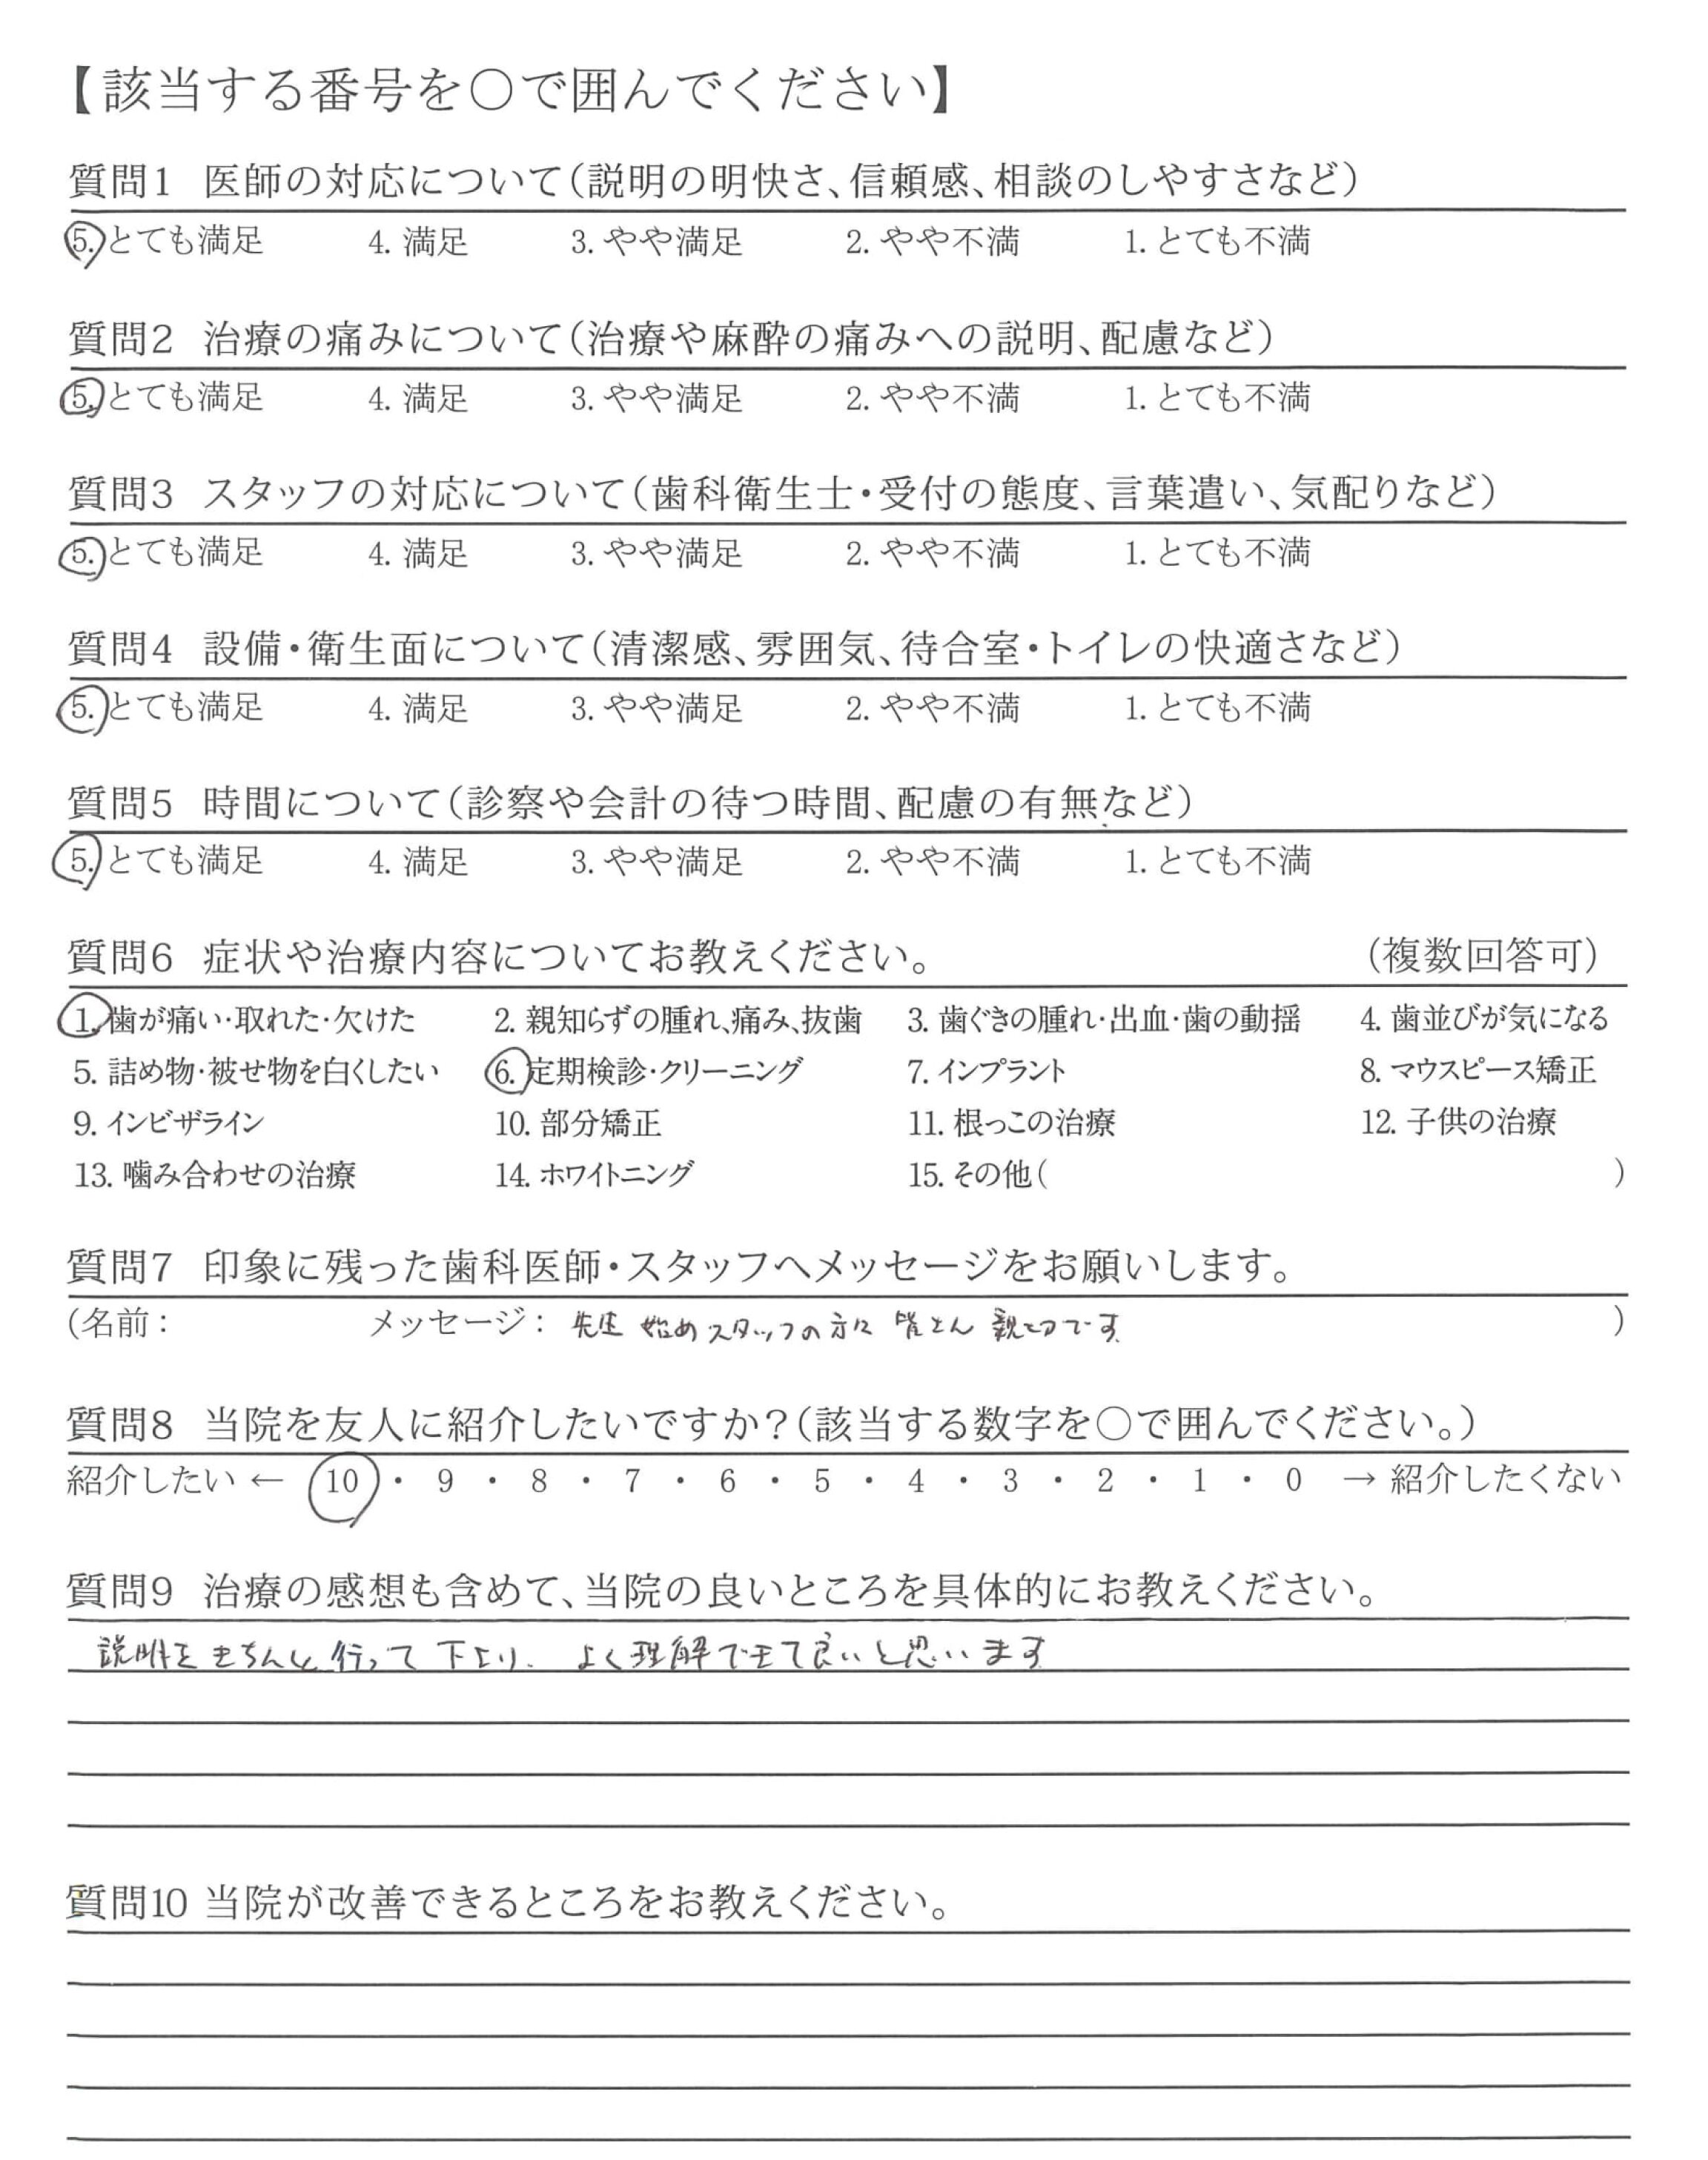 【該当する番号を○で囲んでください】
質問1 医師の対応について(説明の明快さ、信頼感、相談のしやすさなど)
5. とても満足 4. 満足 3. やや満足 2. やや不満 1. とても不満
質問2 治療の痛みについて(治療や麻酔の痛みへの説明、配慮など)
5. とても満足 4. 満足 3. やや満足 2. やや不満 1. とても不満
質問3 スタッフの対応について(歯科衛生士・受付の態度、言葉遣い、気配りなど)
5. とても満足 4. 満足 3. やや満足 2. やや不満 1. とても不満
質問4 設備・衛生面について(清潔感、雰囲気、待合室・トイレの快適さなど)
5. とても満足 4. 満足 3. やや満足 2. やや不満 1. とても不満
質問5 時間について(診察や会計の待つ時間、配慮の有無など)
5. とても満足 4. 満足 3. やや満足 2. やや不満 1. とても不満
質問6 症状や治療内容についてお教えください。 (複数回答可)
1. 歯が痛い・取れた・欠けた 2. 親知らずの腫れ、痛み、抜歯 3. 歯ぐきの腫れ・出血・歯の動揺 4. 歯並びが気になる
5. 詰め物・被せ物を白くしたい 6. 定期検診・クリーニング 7. インプラント 8. マウスピース矯正
9. インビザライン 10. 部分矯正 11. 根っこの治療 12. 子供の治療
13. 噛み合わせの治療 14. ホワイトニング 15. その他( )
質問7 印象に残った歯科医師・スタッフへメッセージをお願いします。
(名前: メッセージ: 先生 始め スタッフの方々 皆さん 親切です )
質問8 当院を友人に紹介したいですか?(該当する数字を○で囲んでください。)
紹介したい ← 10 ・ 9 ・ 8 ・ 7 ・ 6 ・ 5 ・ 4 ・ 3 ・ 2 ・ 1 ・ 0 → 紹介したくない
質問9 治療の感想も含めて、当院の良いところを具体的にお教えください。
説明をきちんと行って下さり、よく理解できて良いと思います
質問10 当院が改善できるところをお教えください。